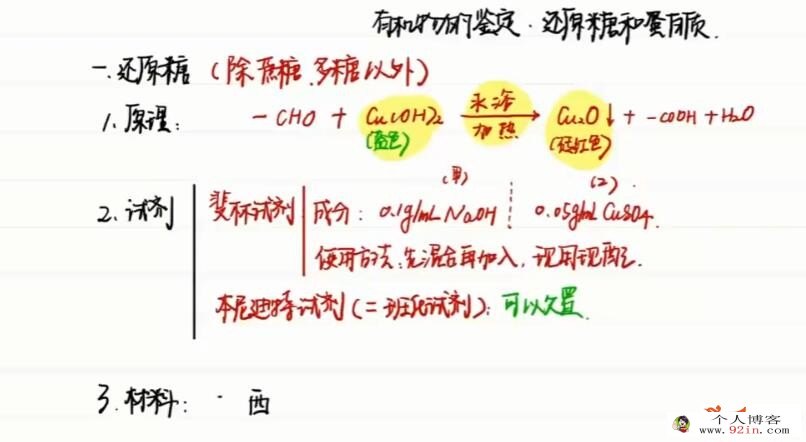 有机物的鉴定·还原糖和蛋白质.
一.还原糖 (除蔗糖、多糖以外)
1.原理: -CHO + Cu(OH)₂ 水浴 加热 → Cu₂O↓ + -COOH + H₂O
(蓝色) (砖红色)
(甲) (乙)
2.试剂 斐林试剂 成分: 0.1g/mL NaOH 0.05g/mL CuSO₄.
使用方法:先混合再加入,现用现配.
本尼迪特试剂(=班氏试剂):可以久置.
3.材料: · 西
个人博客
www.92in.com